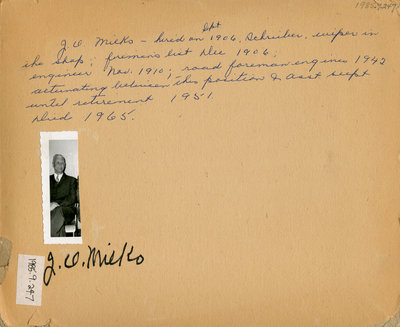 1985.9.247
Sept
J. W. Micks - hired on 1904, Schreiber, wiper in
the shop; firemen's list Dec 1906;
engineer Nov. 1910; road foreman engines 1942
alternating between this position & asst supt
until retirement 1951.
Died 1965.
J. W. Micks
1985.9.247